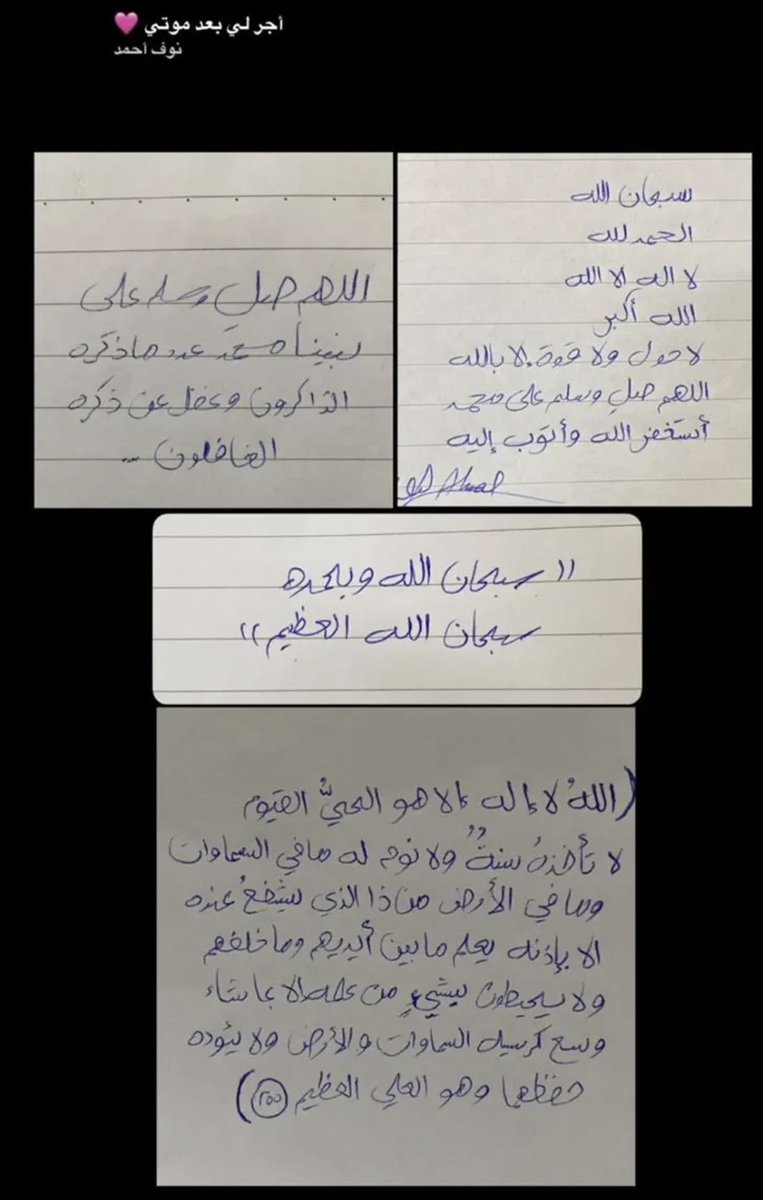 أجر لي بعد موتي 🩷
نوف أحمد
سبحان الله
الحمد لله
لا اله الا الله
الله أكبر
لا حول ولا قوة الا بالله
اللهم صلِ وسلم على محمد
أستغفر الله وأتوب إليه
Ahmad
اللهم صل وسلم على
نبينا محمد عدد ما ذكره
الذاكرون وغفل عن ذكره
الغافلون ...
"سبحان الله وبحمده
سبحان الله العظيم"
(اللهُ لا إله إلا هو الحيُّ القيوم
لا تأخذهُ سنةٌ ولا نوم له ما في السماوات
وما في الأرض من ذا الذي يشفعُ عنده
الا بإذنه يعلم ما بين أيديهم وما خلفهم
ولا يحيطون بشيءٍ من علمه الا بما شاء
وسع كرسيه السماوات والأرض ولا يئوده
حفظهما وهو العلي العظيم (٢٥٥))